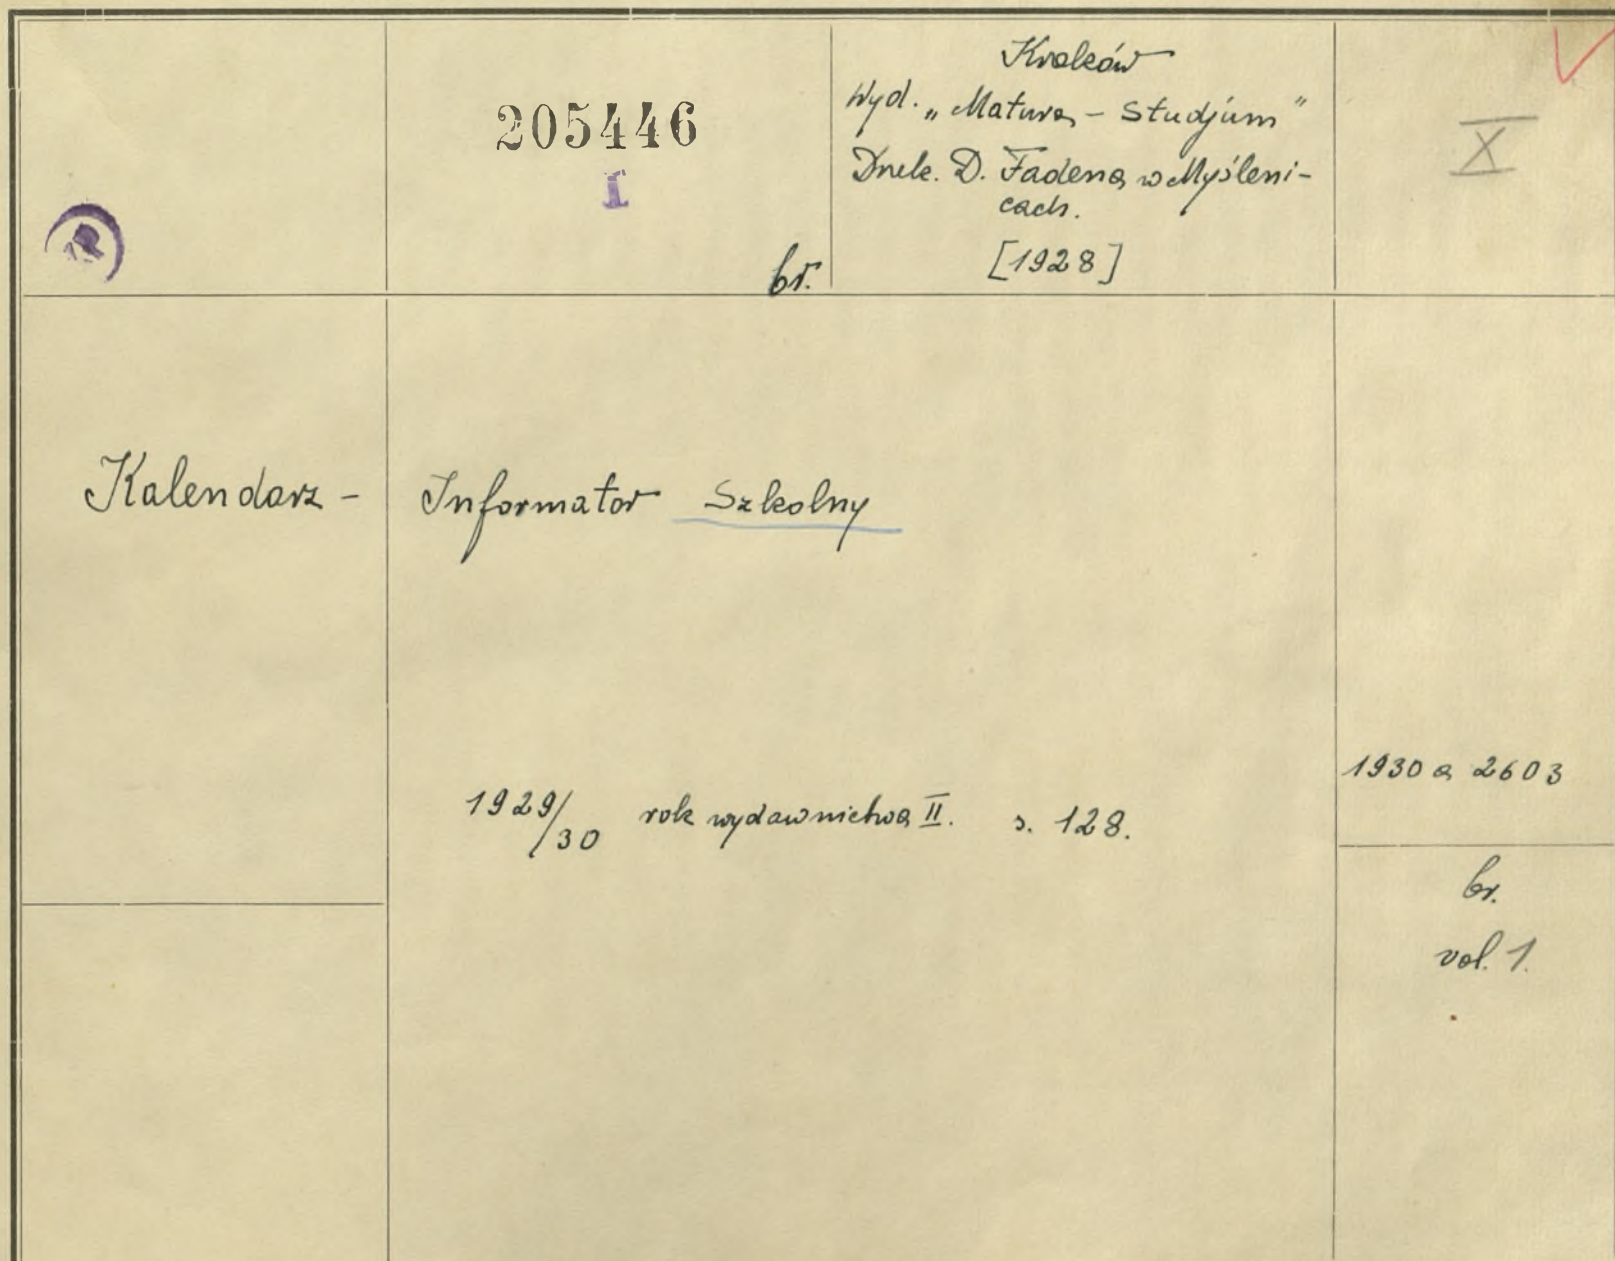 205446
I
br.
Kraków
Wyd. „Matura – Studjum”
Druk. D. Fadena w Myśleni-
cach.
[1928]
X
Kalendarz – Informator Szkolny
1929/30 rok wydawnictwa II. s. 128.
1930 a 2603
br.
vol. 1.